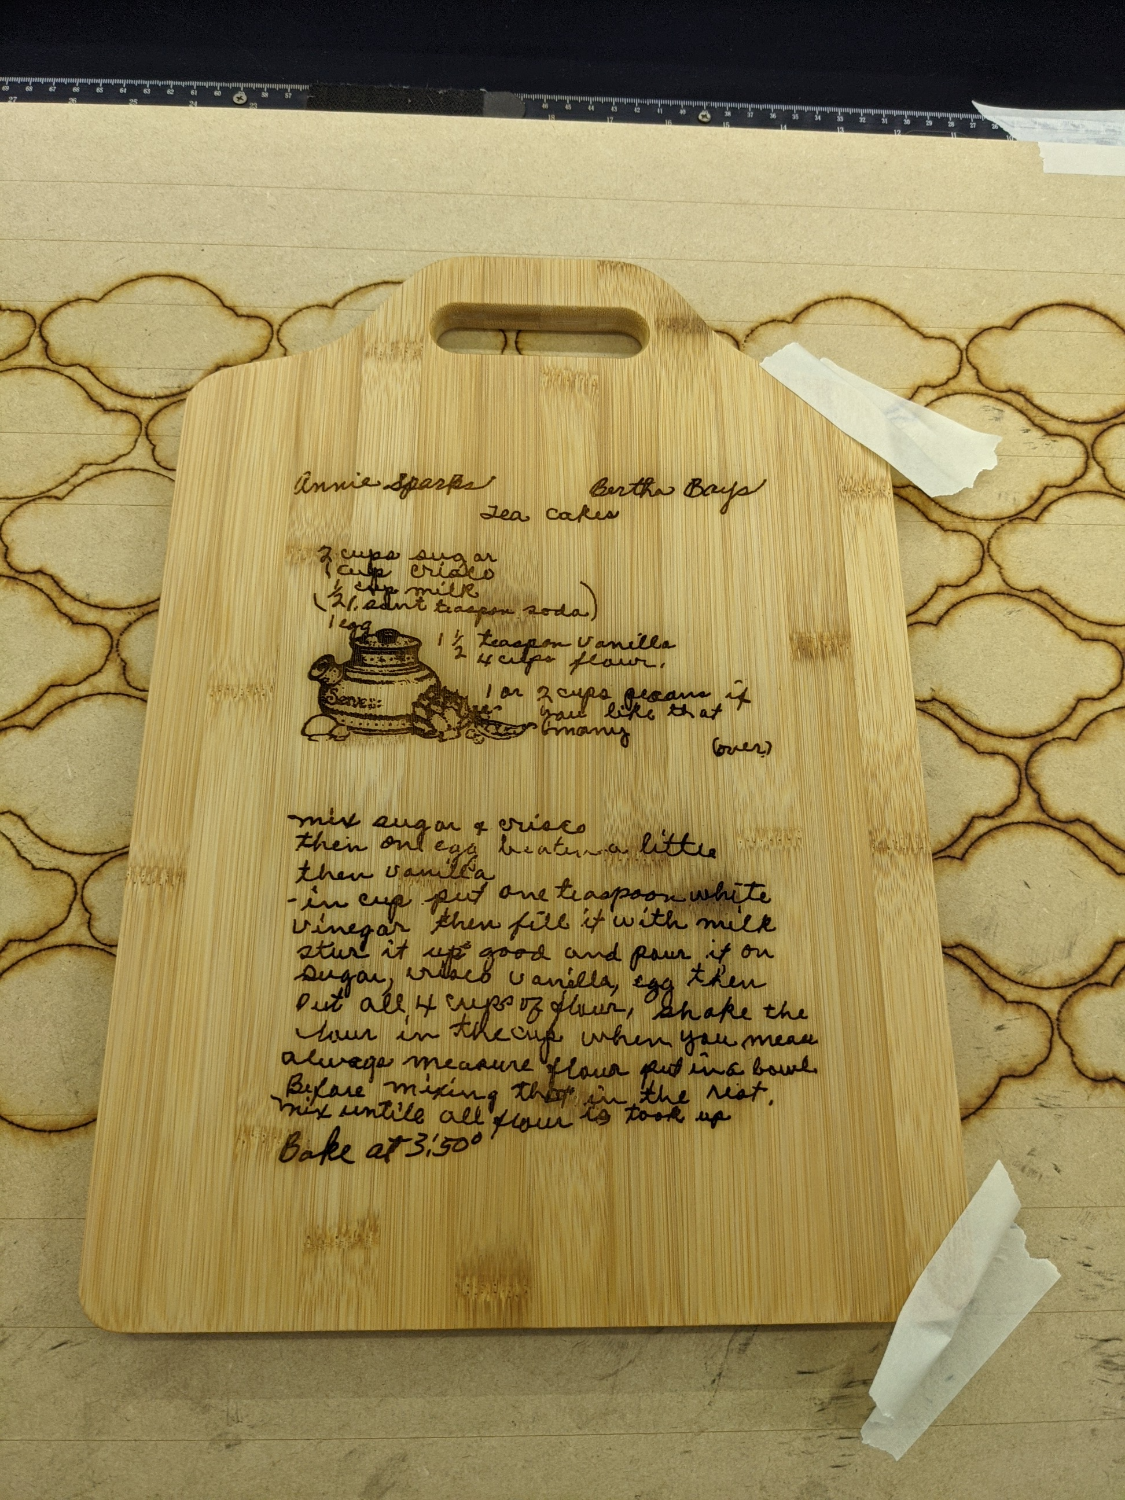 Annie Sparks Bertha Bays
Tea cakes
2 cups sugar
1 cup crisco
1/2 cup milk
(2/ sant teaspon soda)
1 egg
1 1/2 teaspon vanilla
4 cups flour.
Serves:
1 or 2 cups pecans if
you like that
many
(over)
mix sugar & crisco
then one egg beaten a little
then vanilla
- in cup put one teaspoon white
vinegar then fill it with milk
stur it up good and pour it on
sugar, crisco vanilla, egg then
Put all 4 cups of flour, shake the
lour in the cup when you meas
always measure flour put in a bowl
Before mixing that in the rest.
mix untill all flour is took up
Bake at 350°